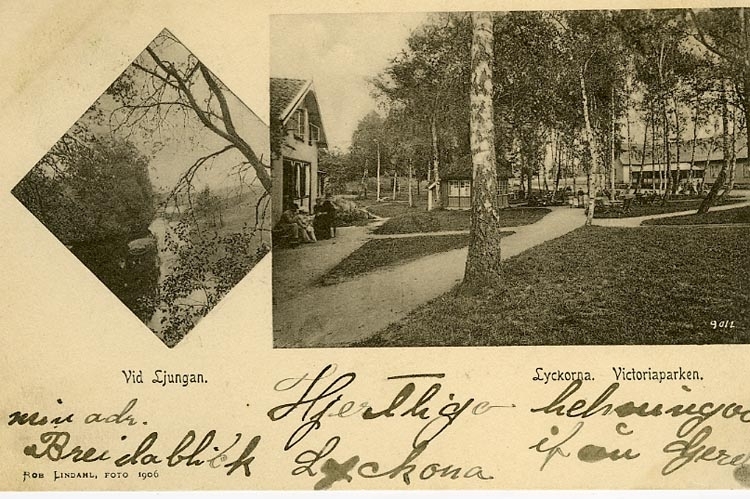 9011
Vid Ljungan.
Lyckorna. Victoriaparken.
min adr. Hjertliga helsningar
Breidablick Lyckona ifrån Gerd
ROB LINDAHL, FOTO 1906